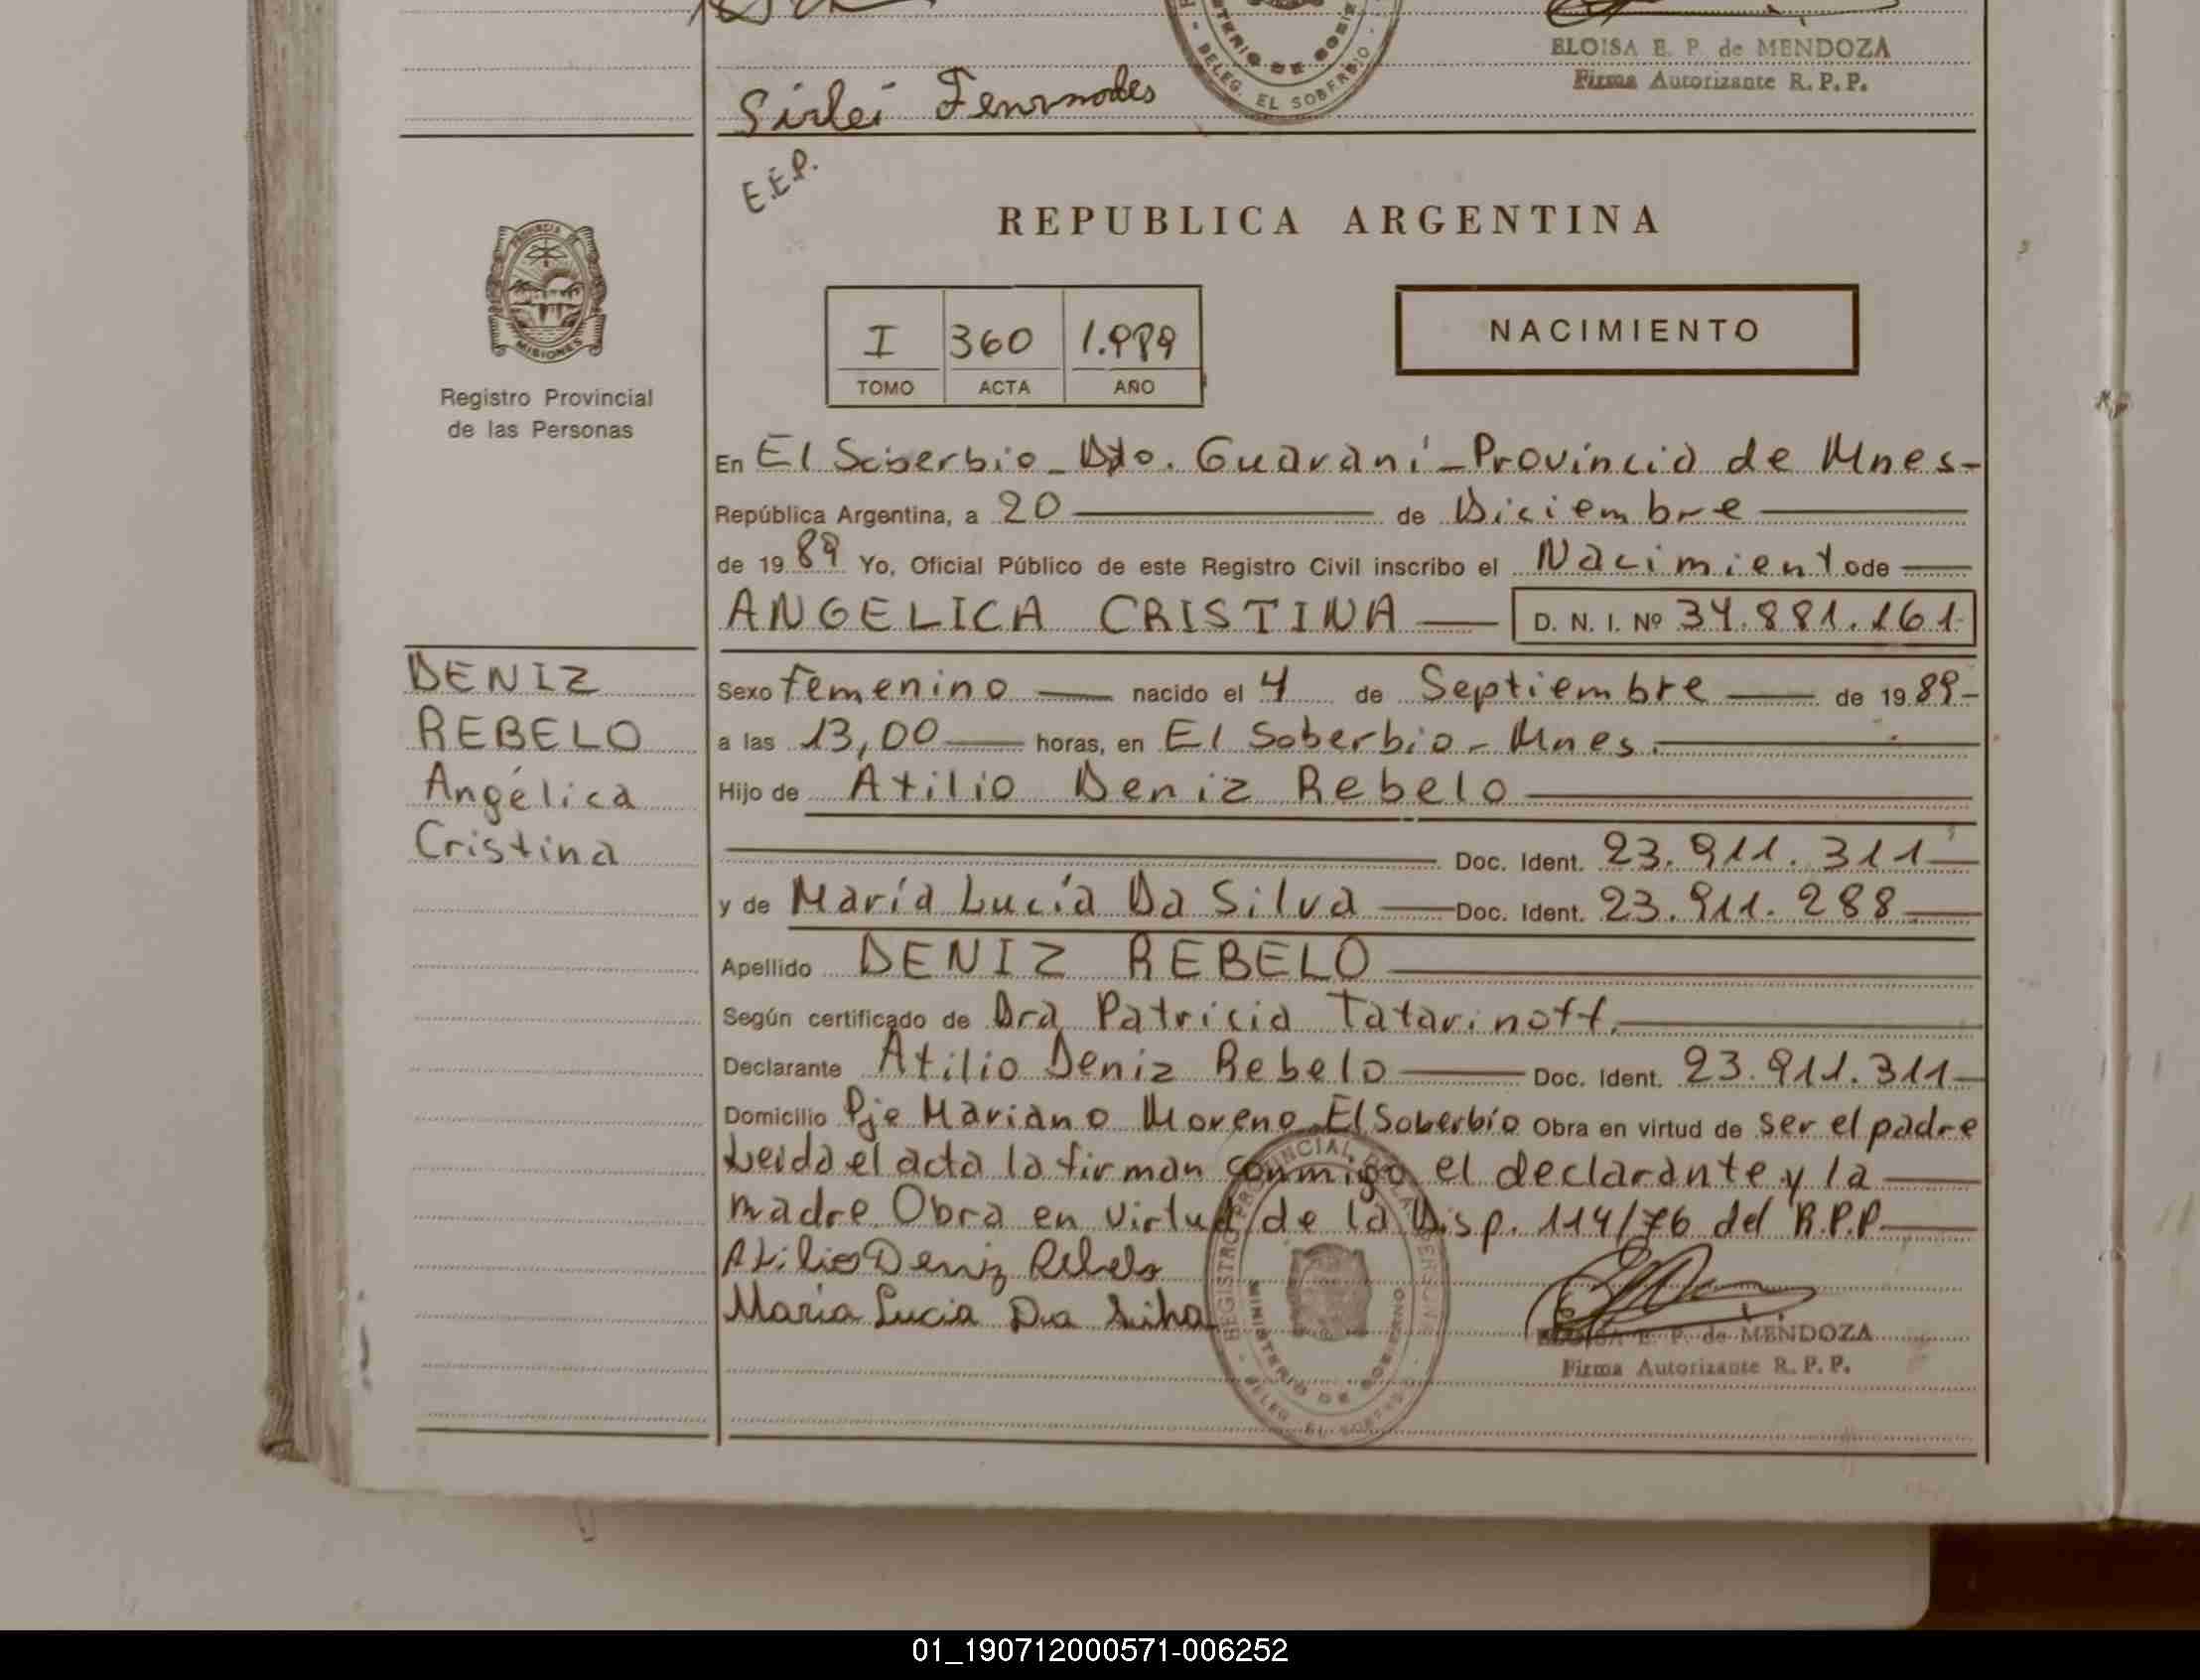 ELOISA E. P. de MENDOZA
Firma Autorizante R. P. P.
DELEG. EL SOBERBIO
Sirlei Fernandes
E.E.P.
REPUBLICA ARGENTINA
PROVINCIA DE
MISIONES
Registro Provincial
de las Personas
I 360 1.989
TOMO ACTA AÑO
NACIMIENTO
En El Soberbio - Dto. Guaraní - Provincia de Mnes-
República Argentina, a 20 de Diciembre
de 1989 Yo, Oficial Público de este Registro Civil inscribo el Nacimiento de
ANGELICA CRISTINA D. N. I. Nº 34.881.161
DENIZ
REBELO
Angélica
Cristina
Sexo femenino nacido el 4 de Septiembre de 1989-
a las 13,00 horas, en El Soberbio - Mnes.
Hijo de Atilio Deniz Rebelo
Doc. Ident. 23.911.311
y de María Lucía Da Silva Doc. Ident. 23.911.288
Apellido DENIZ REBELO
Según certificado de Dra Patricia Tatarinoff.
Declarante Atilio Deniz Rebelo Doc. Ident. 23.911.311
Domicilio Pje Mariano Moreno El Soberbio Obra en virtud de ser el padre
Leida el acta la firman conmigo el declarante y la
madre. Obra en virtud de la Disp. 114/76 del R.P.P.
Atilio Deniz Rebelo
Maria Lucia Da Silva
REGISTRO PROVINCIAL DE LAS PERSONAS
MINISTERIO DE GOBIERNO
DELEG. EL SOBERBIO
ELOISA E. P. de MENDOZA
Firma Autorizante R. P. P.
01_190712000571-006252